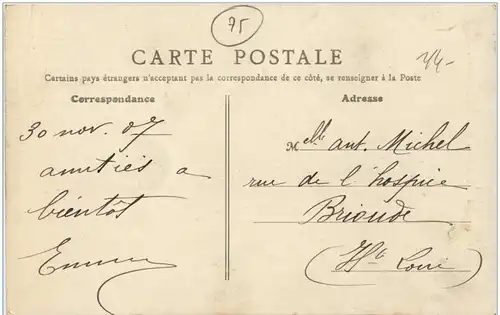 75
CARTE POSTALE
44-
Certains pays étrangers n'acceptant pas la correspondance de ce côté, se renseigner à la Poste
Correspondance
Adresse
30 nov. 07
amitiés a
bientôt
Emma
Melle ant. Michel
rue de l'hospice
Brioude
(Hte Loire)